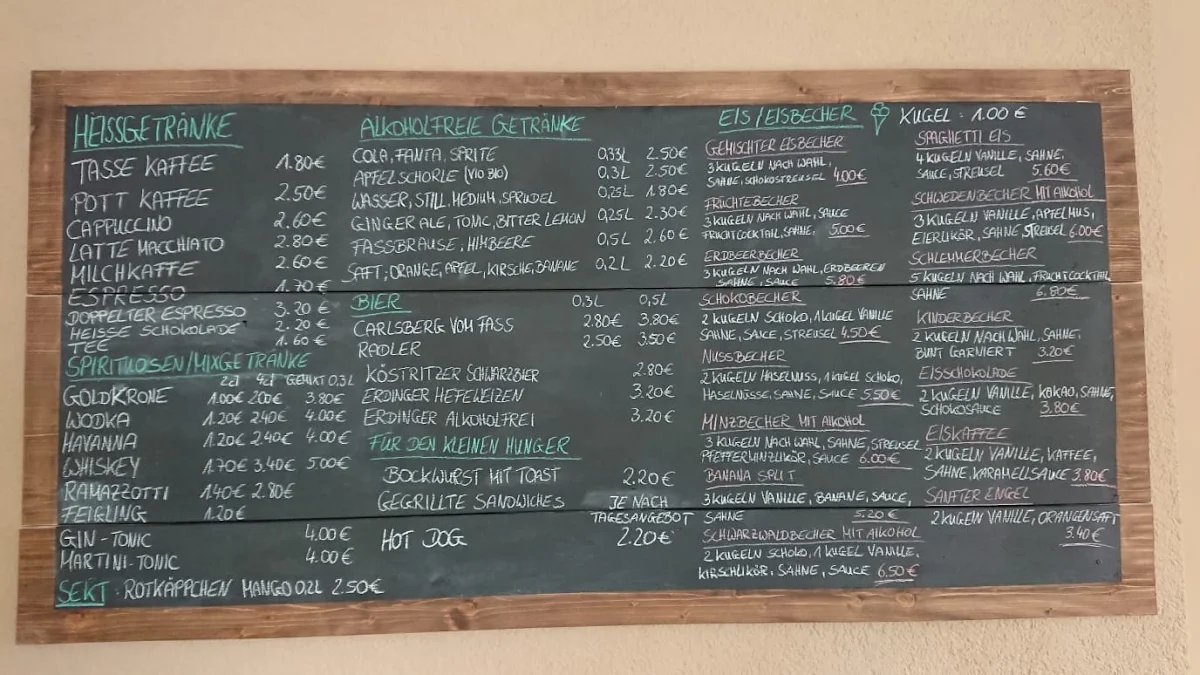 HEISSGETRÄNKE
TASSE KAFFEE 1.80€
POTT KAFFEE 2.50€
CAPPUCCINO 2.60€
LATTE MACCHIATO 2.80€
MILCHKAFFE 2.60€
ESPRESSO 1.70€
DOPPELTER ESPRESSO 3.20€
HEISSE SCHOKOLADE 2.20€
TEE 1.60€
SPIRITUOSEN/MIXGETRÄNKE
2cl 4cl GEMIXT 0.3L
GOLDKRONE 1.00€ 2.00€ 3.80€
WODKA 1.20€ 2.40€ 4.00€
HAVANNA 1.20€ 2.40€ 4.00€
WHISKEY 1.70€ 3.40€ 5.00€
RAMAZZOTTI 1.40€ 2.80€
FEIGLING 1.20€
GIN-TONIC 4.00€
MARTINI-TONIC 4.00€
SEKT: ROTKÄPPCHEN MANGO 0,2L 2.50€
ALKOHOLFREIE GETRÄNKE
COLA, FANTA, SPRITE 0,33L 2.50€
APFELSCHORLE (VIO BIO) 0,3L 2.50€
WASSER, STILL, MEDIUM, SPRUDEL 0,25L 1.80€
GINGER ALE, TONIC, BITTER LEMON 0,25L 2.30€
FASSBRAUSE, HIMBEERE 0,5L 2.60€
SAFT; ORANGE, APFEL, KIRSCHE, BANANE 0,2L 2.20€
BIER 0,3L 0,5L
CARLSBERG VOM FASS 2.80€ 3.80€
RADLER 2.50€ 3.50€
KÖSTRITZER SCHWARZBIER 2.80€
ERDINGER HEFEWEIZEN 3.20€
ERDINGER ALKOHOLFREI 3.20€
FÜR DEN KLEINEN HUNGER
BOCKWURST MIT TOAST 2.20€
GEGRILLTE SANDWICHES JE NACH
TAGESANGEBOT
HOT DOG 2.20€
EIS/EISBECHER KUGEL: 1.00€
GEMISCHTER EISBECHER
3 KUGELN NACH WAHL,
SAHNE, SCHOKOSTREUSEL 4.00€
FRÜCHTEBECHER
3 KUGELN NACH WAHL, SAUCE
FRUCHTCOCKTAIL, SAHNE, 5.00€
ERDBEERBECHER
3 KUGELN NACH WAHL, ERDBEEREN
SAHNE, SAUCE 5.80€
SCHOKOBECHER
2 KUGELN SCHOKO, 1 KUGEL VANILLE
SAHNE, SAUCE, STREUSEL 4.50€
NUSSBECHER
2 KUGELN HASELNUSS, 1 KUGEL SCHOKO,
HASELNÜSSE, SAHNE, SAUCE 5.50€
MINZBECHER MIT ALKOHOL
3 KUGELN NACH WAHL, SAHNE, STREUSEL
PFEFFERMINZLIKÖR, SAUCE 6.00€
BANANA SPLIT
3 KUGELN VANILLE, BANANE, SAUCE,
SAHNE 5.20€
SCHWARZWALDBECHER MIT ALKOHOL
2 KUGELN SCHOKO, 1 KUGEL VANILLE,
KIRSCHLIKÖR, SAHNE, SAUCE 6,50€
SPAGHETTI EIS
4 KUGELN VANILLE, SAHNE,
SAUCE, STREUSEL 5.60€
SCHWEDENBECHER MIT ALKOHOL
3 KUGELN VANILLE, APFELMUS,
EIERLIKÖR, SAHNE, STREUSEL 6.00€
SCHLEMMERBECHER
5 KUGELN NACH WAHL, FRUCHTCOCKTAIL
SAHNE 6.80€
KINDERBECHER
2 KUGELN NACH WAHL, SAHNE,
BUNT GARNIERT 3.20€
EISSCHOKOLADE
2 KUGELN VANILLE, KAKAO, SAHNE,
SCHOKOSAUCE 3.80€
EISKAFFEE
2 KUGELN VANILLE, KAFFEE,
SAHNE, KARAMELLSAUCE 3.80€
SANFTER ENGEL
2 KUGELN VANILLE, ORANGENSAFT
3.40€